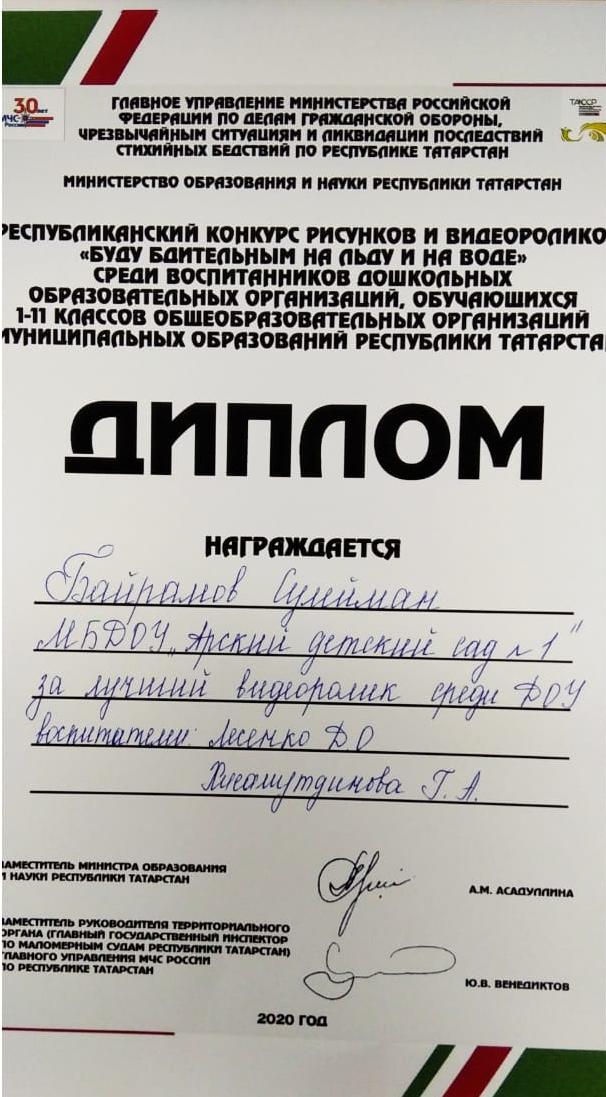 30 ЛЕТ
МЧС
России
ТАССР
ГЛАВНОЕ УПРАВЛЕНИЕ МИНИСТЕРСТВА РОССИЙСКОЙ
ФЕДЕРАЦИИ ПО ДЕЛАМ ГРАЖДАНСКОЙ ОБОРОНЫ,
ЧРЕЗВЫЧАЙНЫМ СИТУАЦИЯМ И ЛИКВИДАЦИИ ПОСЛЕДСТВИЙ
СТИХИЙНЫХ БЕДСТВИЙ ПО РЕСПУБЛИКЕ ТАТАРСТАН
МИНИСТЕРСТВО ОБРАЗОВАНИЯ И НАУКИ РЕСПУБЛИКИ ТАТАРСТАН
РЕСПУБЛИКАНСКИЙ КОНКУРС РИСУНКОВ И ВИДЕОРОЛИКО
«БУДУ БДИТЕЛЬНЫМ НА ЛЬДУ И НА ВОДЕ»
СРЕДИ ВОСПИТАННИКОВ ДОШКОЛЬНЫХ
ОБРАЗОВАТЕЛЬНЫХ ОРГАНИЗАЦИЙ, ОБУЧАЮЩИХСЯ
1-11 КЛАССОВ ОБЩЕОБРАЗОВАТЕЛЬНЫХ ОРГАНИЗАЦИЙ
МУНИЦИПАЛЬНЫХ ОБРАЗОВАНИЙ РЕСПУБЛИКИ ТАТАРСТА
ДИПЛОМ
НАГРАЖДАЕТСЯ
Байрамов Сулейман
МБДОУ „Арский детский сад №1"
за лучший видеоролик среди ДОУ
воспитатели: Лесенко Д О
Хисамутдинова Г. А.
ЗАМЕСТИТЕЛЬ МИНИСТРА ОБРАЗОВАНИЯ
И НАУКИ РЕСПУБЛИКИ ТАТАРСТАН
А.М. АСАДУЛЛИНА
ЗАМЕСТИТЕЛЬ РУКОВОДИТЕЛЯ ТЕРРИТОРИАЛЬНОГО
ОРГАНА (ГЛАВНЫЙ ГОСУДАРСТВЕННЫЙ ИНСПЕКТОР
ПО МАЛОМЕРНЫМ СУДАМ РЕСПУБЛИКИ ТАТАРСТАН)
ГЛАВНОГО УПРАВЛЕНИЯ МЧС РОССИИ
ПО РЕСПУБЛИКЕ ТАТАРСТАН
Ю.В. ВЕНЕДИКТОВ
2020 ГОД